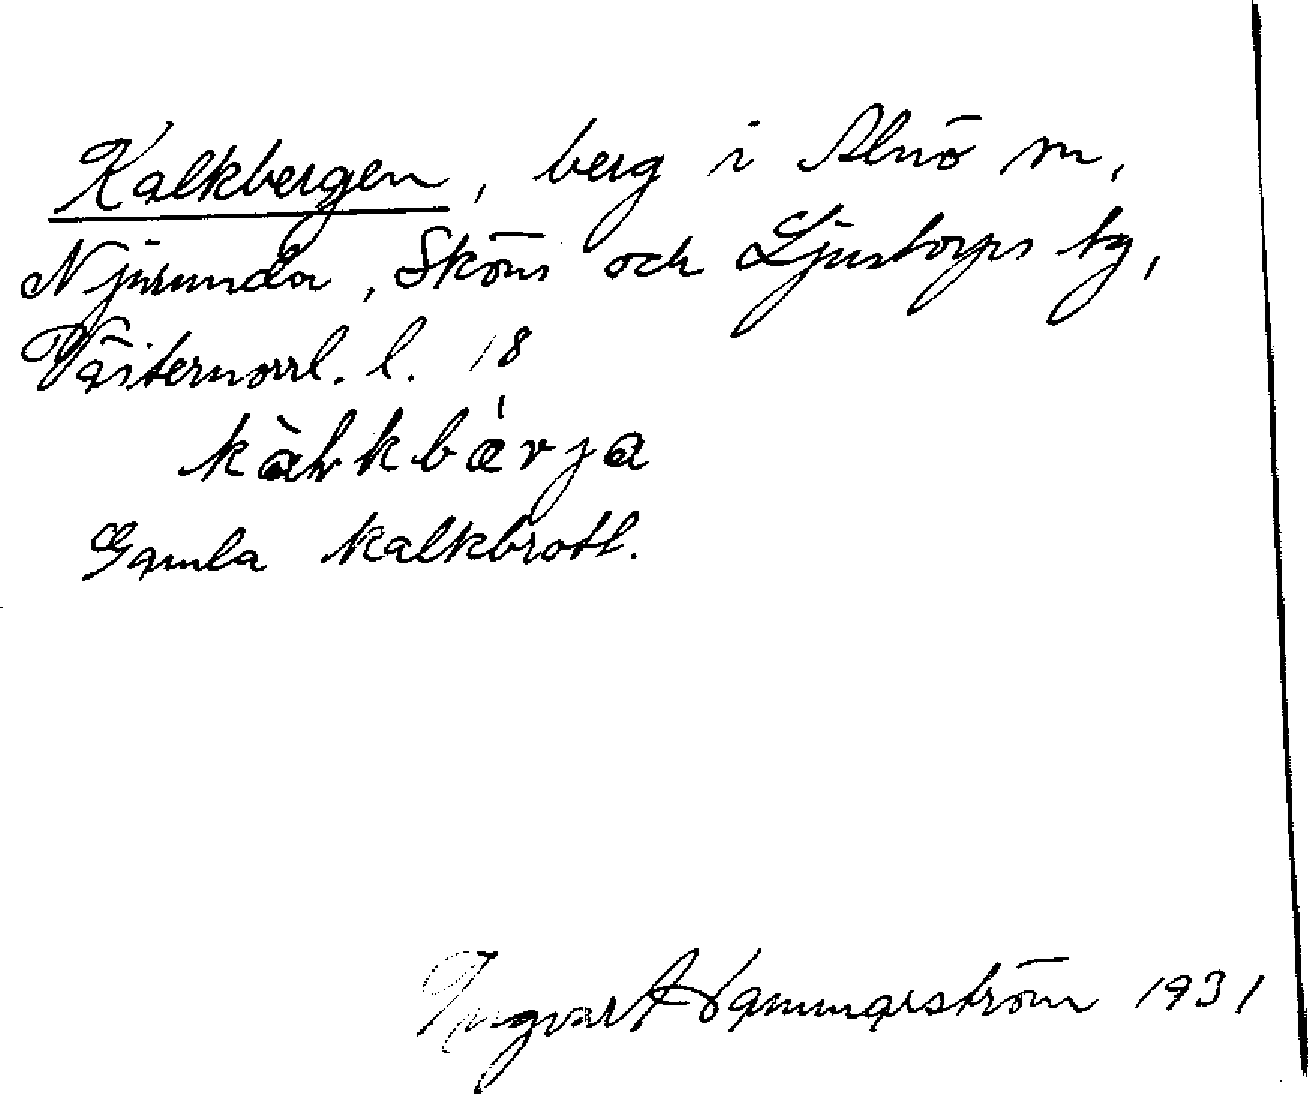 Kalkbergen, berg i Alnö sn,
Njurunda, Sköns och Ljustorps tg,
Västernorrl. l. 18
kàlkbærja
Gamla kalkbrott.
Ingvar Hammarström 1931